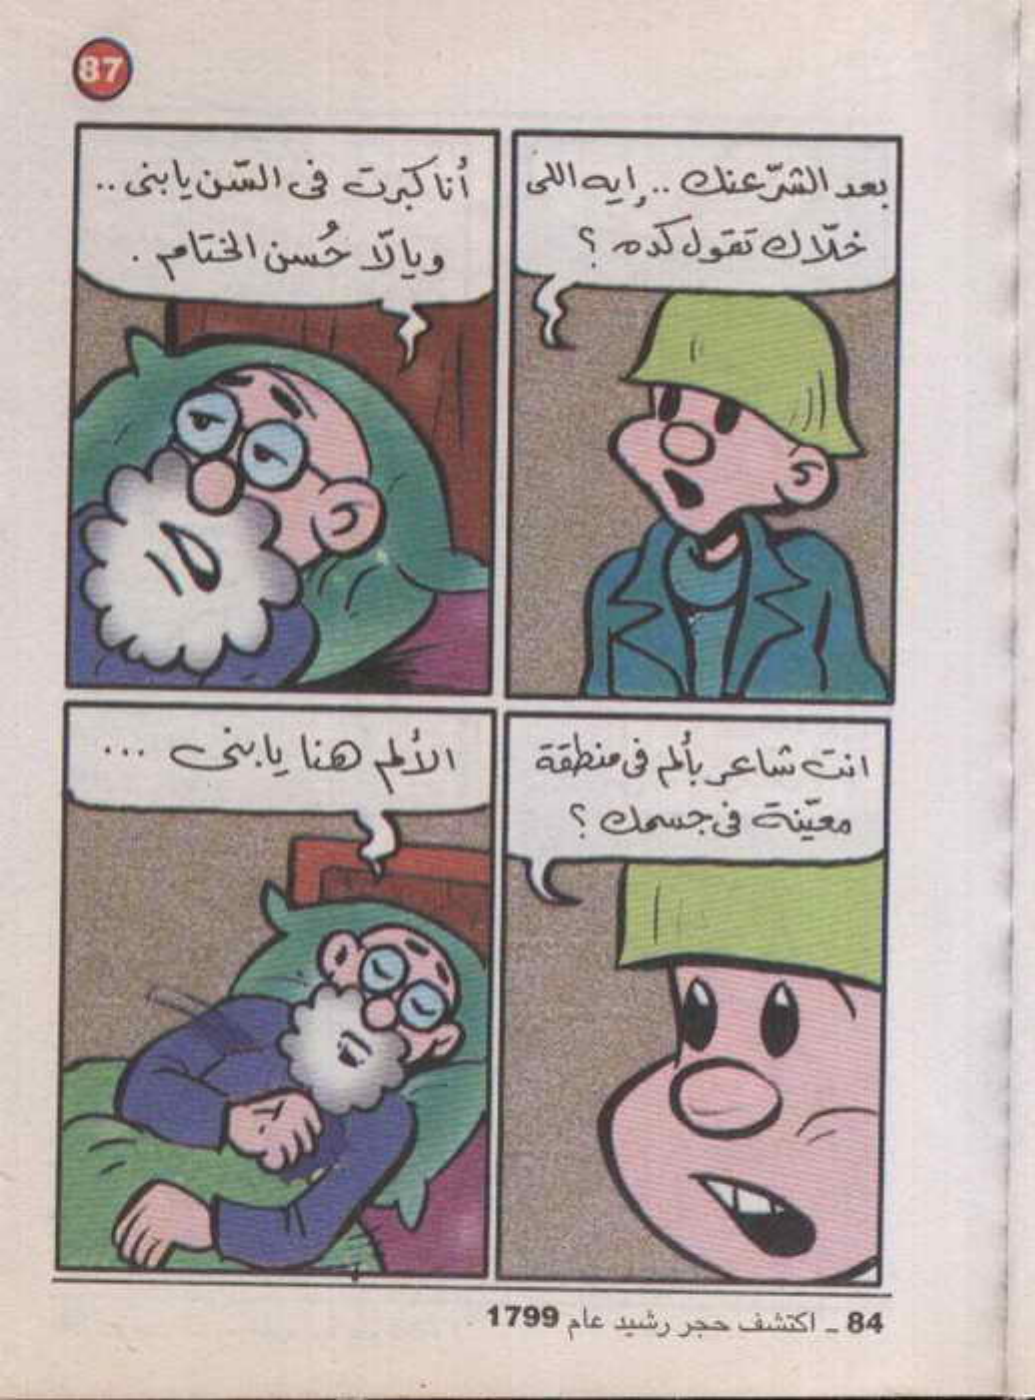 87
بعد الشرّ عنك .. إيه اللى
خلّاك تقول كده ؟
أنا كبّرت فى السّن يا بنى ..
ويالّا حُسن الختام .
انت شاعر بألم فى منطقة
معيّنة فى جسمك ؟
الألم هنا يا بنى ...
84 ـ اكتشف حجر رشيد عام 1799